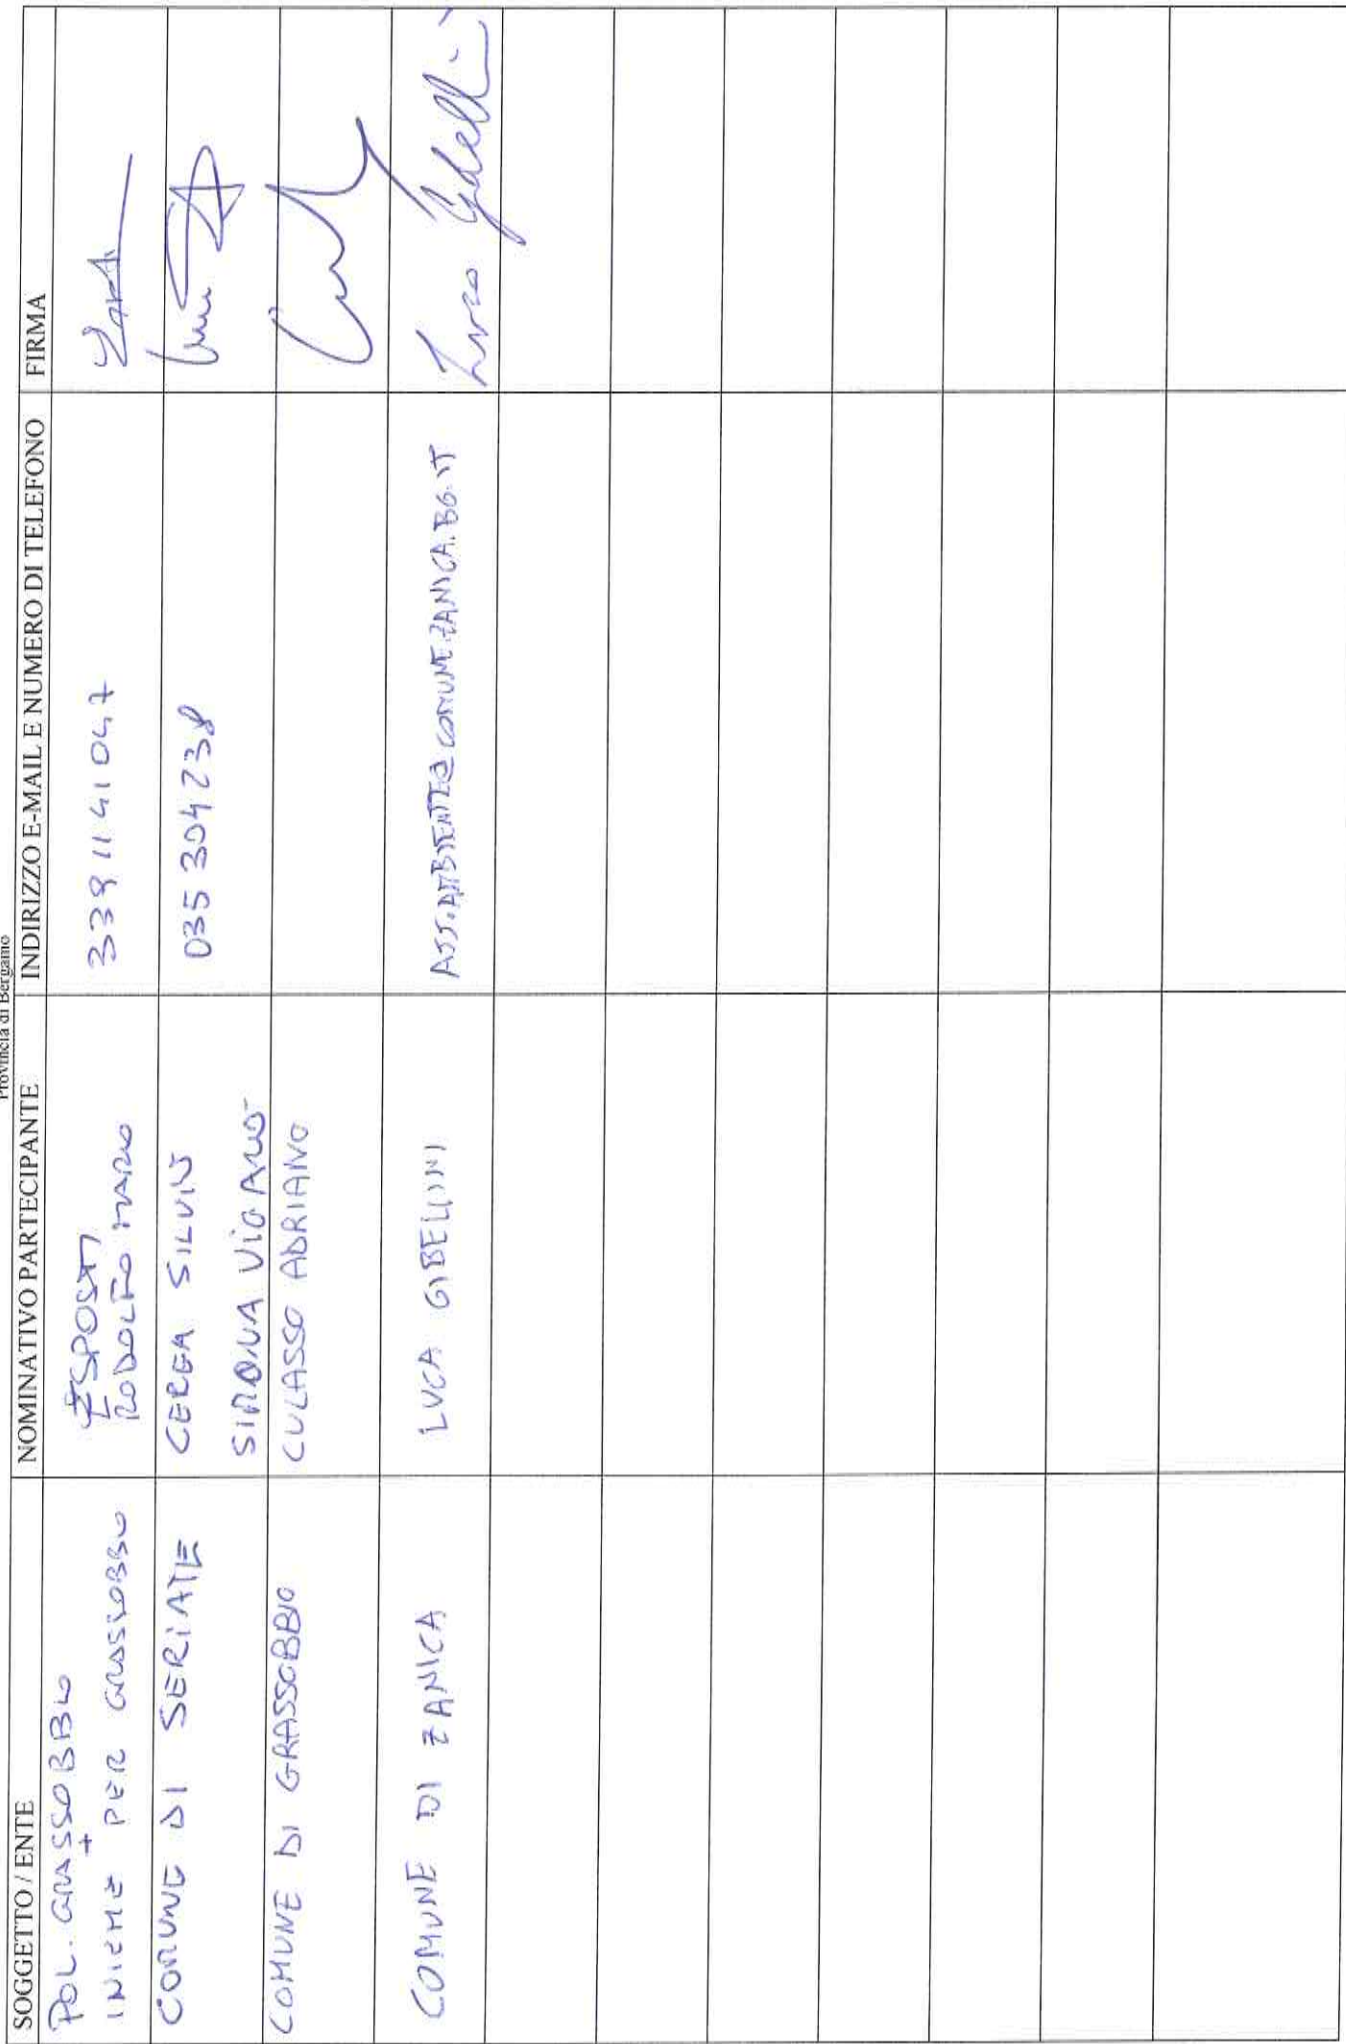 Provincia di Bergamo
SOGGETTO / ENTE NOMINATIVO PARTECIPANTE INDIRIZZO E-MAIL E NUMERO DI TELEFONO FIRMA
POL. GRASSOBBIO
+
INIEME PER GRASSOBBIO
ESPOSTI
RODOLFO MARIO
338 11 41 047
COMUNE DI SERIATE
CEREA SILVIO
035 304238
SIMONA VIGANO'
COMUNE DI GRASSOBBIO
CULASSO ADRIANO
COMUNE DI ZANICA
LUCA GIBELLINI
ASS.AMBIENTE@COMUNE.ZANICA.BG.IT
Luca Gibellini